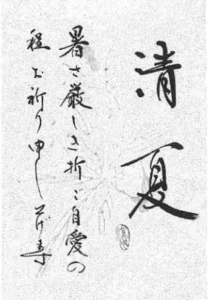 清夏
暑さ厳しき折ご自愛の
程お祈り申し上げます